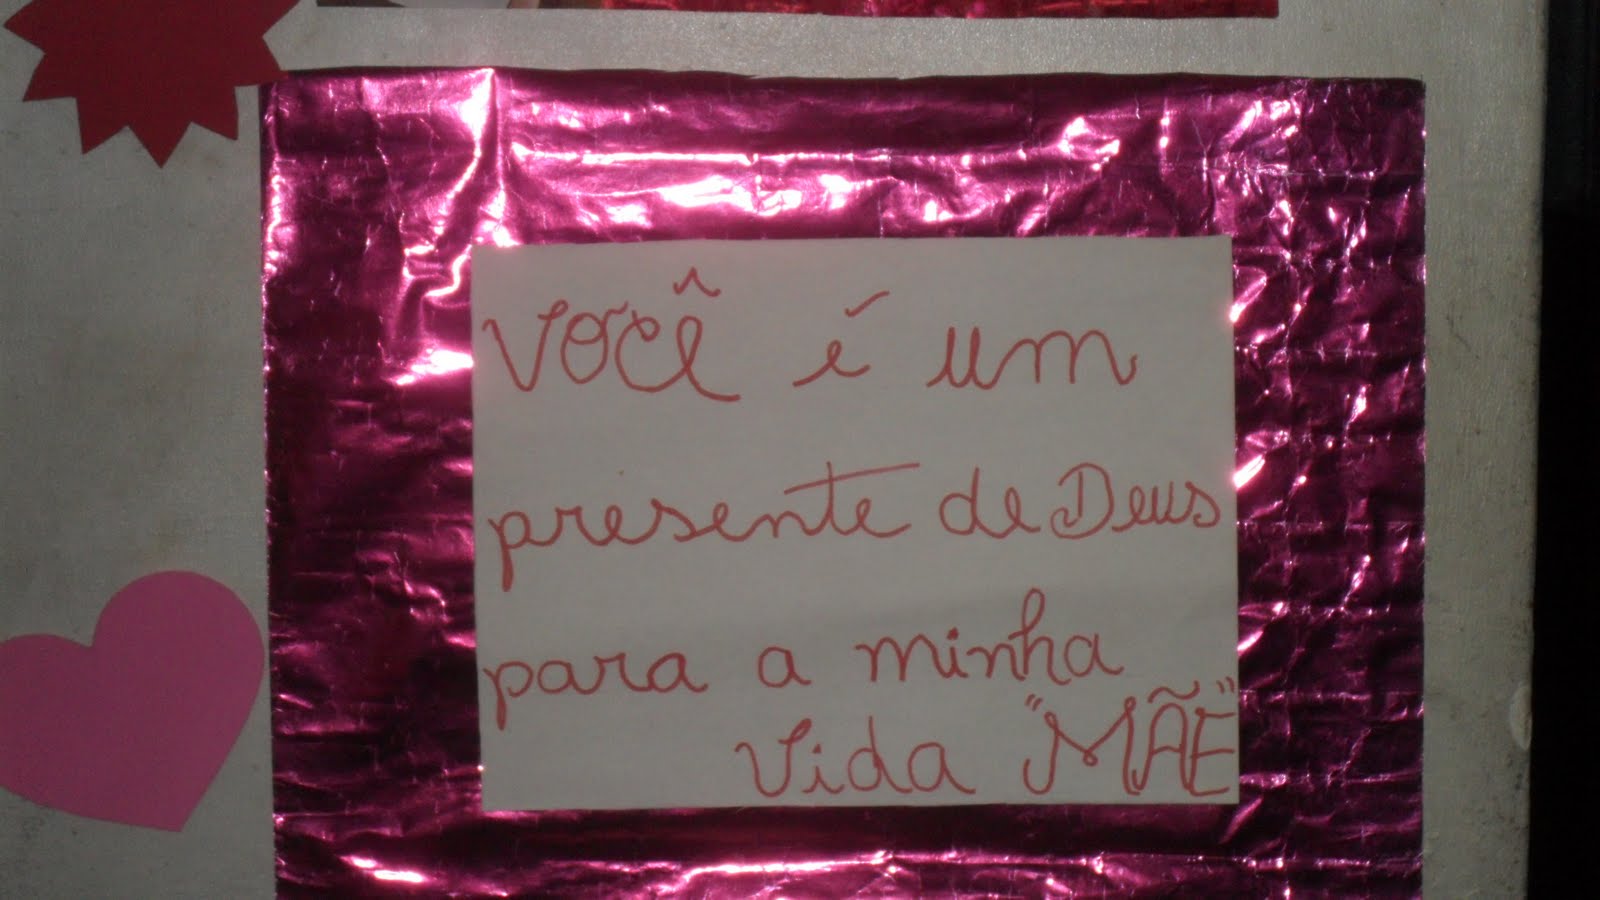 Você é um
presente de Deus
para a minha
Vida "MÃE"